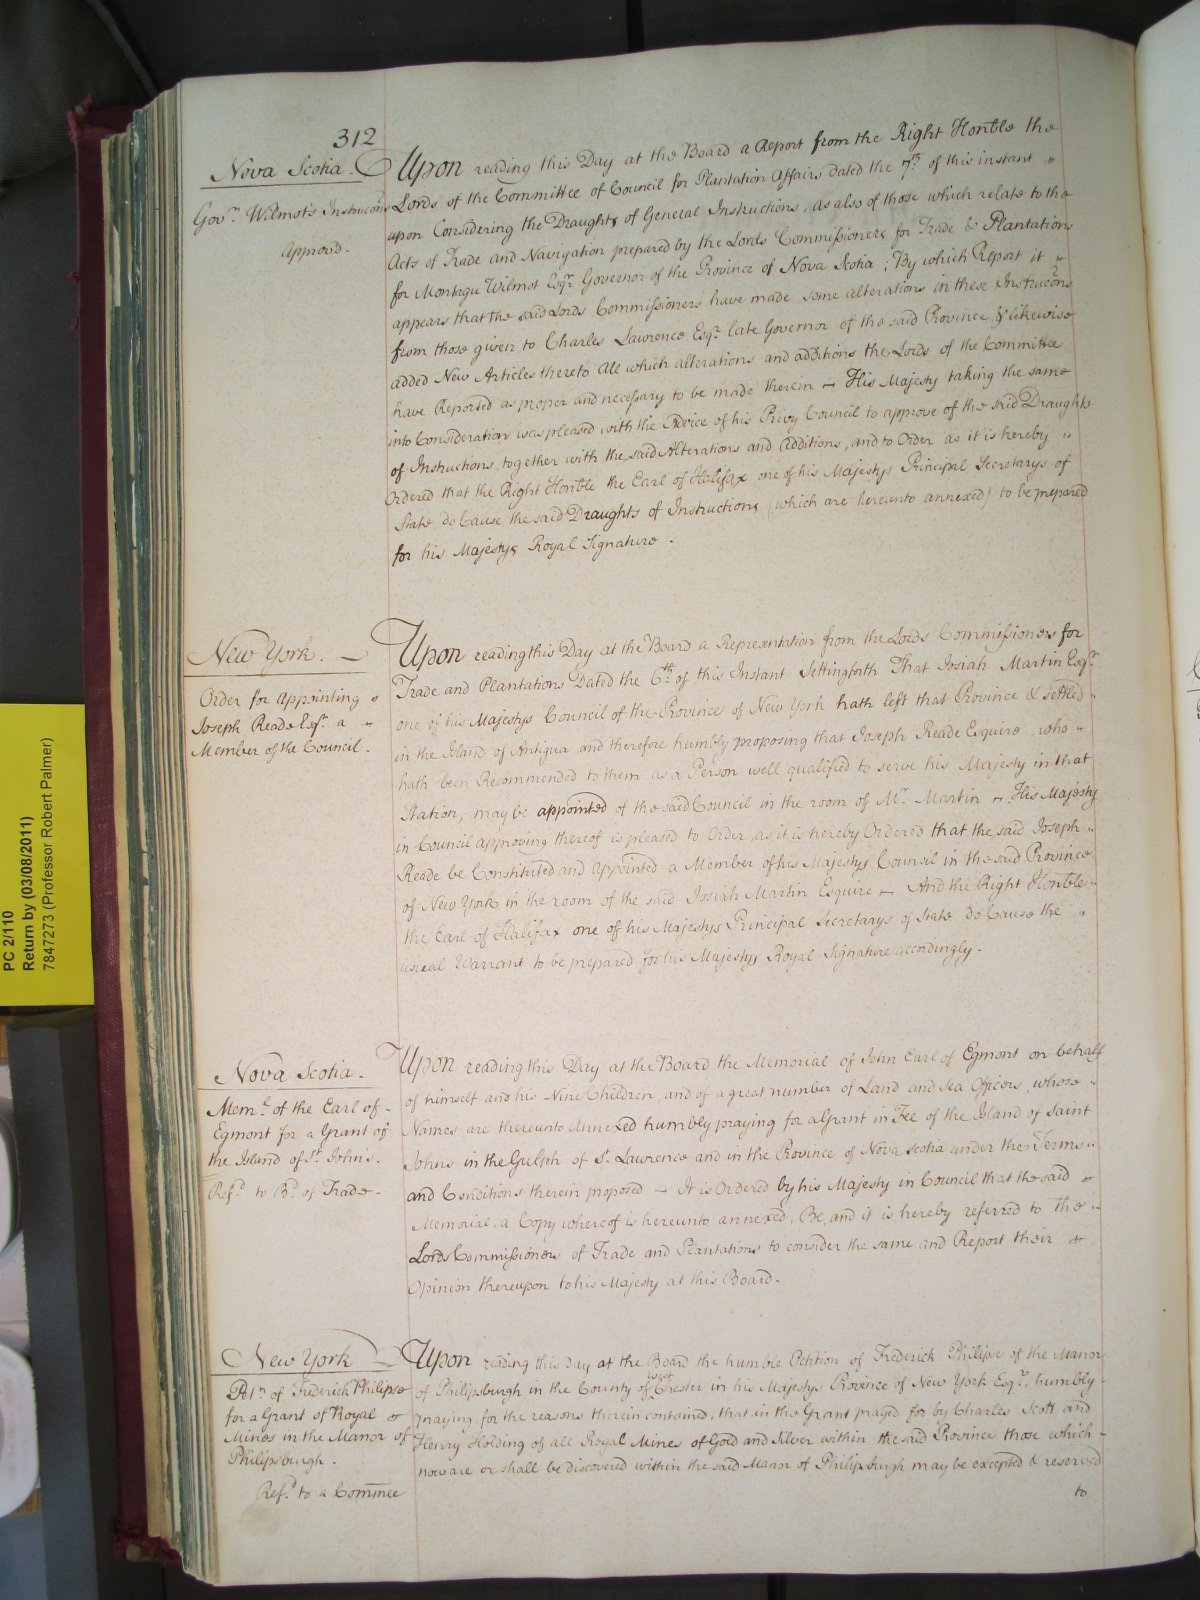 312
Nova Scotia.
Govr. Wilmot's Instrucons
Approvd.
Upon reading this Day at the Board a Report from the Right Honble the
Lords of the Committee of Council for Plantation Affairs dated the 7th. of this instant
upon Considering the Draughts of General Instructions, as also of those which relate to the
Acts of Trade and Navigation prepared by the Lords Commissioners for Trade & Plantations
for Montagu Wilmot Esqr. Governor of the Province of Nova Scotia; By which Report it
appears that the said Lords Commissioners have made some alterations in these Instrucons
from those given to Charles Lawrence Esqr. late Governor of the said Province, & likewise
added New Articles thereto All which alterations and additions the Lords of the Committee
have Reported as proper and necessary to be made therein – His Majesty taking the same
into Consideration was pleased with the Advice of his Privy Council to approve of the said Draughts
of Instructions, together with the said Alterations and Additions, and to Order as it is hereby
Ordered that the Right Honble the Earl of Halifax one of his Majestys Principal Secretarys of
State do Cause the said Draughts of Instructions (which are hereunto annexed) to be prepared
for his Majestys Royal Signature.
New York.
Order for Appointing
Joseph Reade Esqr. a
Member of the Council.
Upon reading this Day at the Board a Representation from the Lords Commissioners for
Trade and Plantations Dated the 6th. of this Instant Settingforth That Josiah Martin Esqr.
one of his Majestys Council of the Province of New York hath left that Province & settled
in the Island of Antigua and therefore humbly proposing that Joseph Reade Esquire, who
hath been Recommended to them as a Person well qualified to serve his Majesty in that
Station, may be appointed of the said Council in the room of Mr. Martin – His Majesty
in Council approving thereof is pleased to Order, as it is hereby Ordered that the said Joseph
Reade be Constituted and appointed a Member of his Majestys Council in the said Province
of New York in the room of the said Josiah Martin Esquire – And the Right Honble
the Earl of Halifax one of his Majestys Principal Secretarys of State do Cause the
usual Warrant to be prepared for his Majestys Royal Signature accordingly.
Nova Scotia.
Meml. of the Earl of
Egmont for a Grant of
the Island of St. John's.
Refd. to Bd. of Trade.
Upon reading this Day at the Board the Memorial of John Earl of Egmont on behalf
of himself and his Nine Children, and of a great number of Land and Sea Officers, whose
Names are thereunto Annexed humbly praying for a Grant in Fee of the Island of Saint
Johns in the Gulph of St. Lawrence and in the Province of Nova Scotia under the Terms
and Conditions therein proposed – It is Ordered by his Majesty in Council that the said
Memorial, a Copy whereof is hereunto annexed, Be, and it is hereby referred to the
Lords Commissioners of Trade and Plantations to consider the same and Report their
Opinion thereupon to his Majesty at this Board.
New York
Petn. of Frederick Philipse
for a Grant of Royal
Mines in the Manor of
Philipsburgh.
Refd. to a Commee
Upon reading this day at the Board the humble Petition of Frederick Philipse of the Manor
of Philipsburgh in the County of West Chester in his Majestys Province of New York Esqr., humbly
praying, for the reasons therein contained, that in the Grant prayed for by Charles Scott and
Henry Holding of all Royal Mines of Gold and Silver within the said Province those which
now are or shall be discovered within the said Manor of Philipsburgh may be excepted & reserved
to
PC 2/110
Return by (03/08/2011)
7847273 (Professor Robert Palmer)